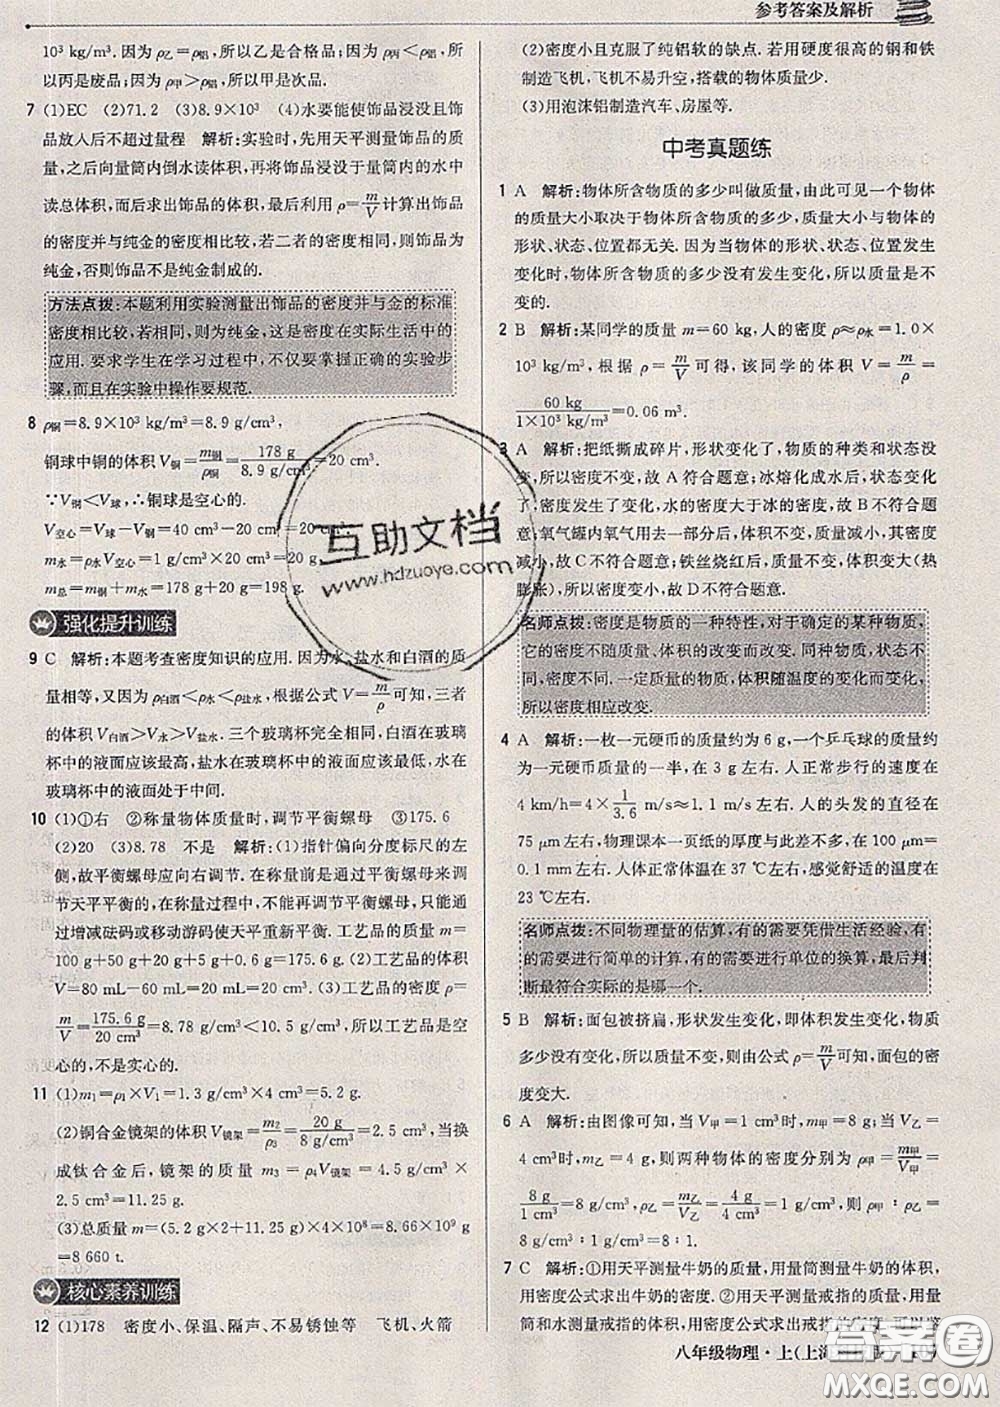 参考答案及解析
10³ kg/m³. 因为 ρ乙=ρ铝, 所以乙是合格品; 因为 ρ丙<ρ铝, 所
以丙是废品; 因为 ρ甲>ρ铝, 所以甲是次品.
7 (1)EC (2)71.2 (3)8.9×10³ (4)水要能使饰品浸没且饰
品放人后不超过量程 解析:实验时,先用天平测量饰品的质
量,之后向量筒内倒水读体积,再将饰品浸没于量筒内的水中
读总体积,而后求出饰品的体积,最后利用 ρ=m/V 计算出饰品
的密度并与纯金的密度相比较,若二者的密度相同,则饰品为
纯金,否则饰品不是纯金制成的.
方法点拨:本题利用实验测量出饰品的密度并与金的标准
密度相比较,若相同,则为纯金,这是密度在实际生活中的
应用. 要求学生在学习过程中,不仅要掌握正确的实验步
骤,而且在实验中操作要规范.
8 ρ铜=8.9×10³ kg/m³=8.9 g/cm³,
铜球中铜的体积 V铜=m铜/ρ铜=178 g/8.9 g/cm³=20 cm³.
∵V铜<V球,∴铜球是空心的.
V空心=V球−V铜=40 cm³−20 cm³=20 cm³
m水=ρ水V空心=1 g/cm³×20 cm³=20 g
m总=m铜+m水=178 g+20 g=198 g
强化提升训练
9 C 解析:本题考查密度知识的应用. 因为水、盐水和白酒的质
量相等,又因为 ρ白酒<ρ水<ρ盐水,根据公式 V=m/ρ 可知,三者
的体积 V白酒>V水>V盐水. 三个玻璃杯完全相同,白酒在玻璃
杯中的液面应该最高,盐水在玻璃杯中的液面应该最低,水在
玻璃杯中的液面处于中间.
10 (1)①右 ②称量物体质量时,调节平衡螺母 ③175.6
(2)20 (3)8.78 不是 解析:(1)指针偏向分度标尺的左
侧,故平衡螺母应向右调节. 在称量前是通过调节平衡螺母
使天平平衡的,在称量过程中,不能再调节平衡螺母,只能通
过增减砝码或移动游码使天平重新平衡. 工艺品的质量 m=
100 g+50 g+20 g+5 g+0.6 g=175.6 g. (2)工艺品的体积
V=80 mL−60 mL=20 cm³. (3)工艺品的密度 ρ=
m/V=175.6 g/20 cm³=8.78 g/cm³<10.5 g/cm³,所以工艺品是空
心的,不是实心的.
11 (1)m₁=ρ₁×V₁=1.3 g/cm³×4 cm³=5.2 g.
(2)铜合金镜架的体积 V镜架=m₂/ρ₃=20 g/8 g/cm³=2.5 cm³,当换
成钛合金后,镜架的质量 m₃=ρ₄V镜架=4.5 g/cm³×
2.5 cm³=11.25 g.
(3)总质量 m=(5.2 g×2+11.25 g)×4×10⁸=8.66×10⁹ g=
8 660 t.
核心素养训练
12 (1)178 密度小、保温、隔声、不易锈蚀等 飞机、火箭
(2)密度小且克服了纯铝软的缺点. 若用硬度很高的钢和铁
制造飞机,飞机不易升空,搭载的物体质量少.
(3)用泡沫铝制造汽车、房屋等.
中考真题练
1 A 解析:物体所含物质的多少叫做质量,由此可见一个物体
的质量大小取决于物体所含物质的多少,质量大小与物体的
形状、状态、位置都无关. 因为当物体的形状、状态、位置发生
变化时,物体所含物质的多少没有发生变化,所以质量是不
变的.
2 B 解析:某同学的质量 m=60 kg,人的密度 ρ≈ρ水=1.0×
10³ kg/m³,根据 ρ=m/V 可得,该同学的体积 V=m/ρ=
60 kg/1×10³ kg/m³=0.06 m³.
3 A 解析:把纸撕成碎片,形状变化了,物质的种类和状态没
变,所以密度不变,故 A 符合题意;冰熔化成水后,状态变化
了,密度发生了变化,水的密度大于冰的密度,故 B 不符合题
意;氧气罐内氧气用去一部分后,体积不变,质量变小,其密度
减小,故 C 不符合题意;铁丝烧红后,质量不变,体积变大(热
膨胀),故密度变小,故 D 不符合题意.
名师点拨:密度是物质的一种特性,对于确定的某种物质,
它的密度不随质量、体积的改变而改变. 同种物质,状态不
同,密度不同. 一定质量的物质,体积随温度的变化而变化,
所以密度相应改变.
4 A 解析:一枚一元硬币的质量约为 6 g,一个乒乓球的质量约
为一元硬币质量的一半,在 3 g 左右. 人正常步行的速度约
4 km/h=4×1/3.6 m/s≈1.1 m/s 左右. 人的头发的直径在
75 μm 左右,物理课本一页纸的厚度与此差不多,在 100 μm=
0.1 mm 左右. 人体正常体温在 37 ℃左右,感觉舒适的温度在
23 ℃左右.
名师点拨:不同物理量的估算,有的需要凭借生活经验,有
的需要进行简单的计算,有的需要进行单位的换算,最后判
断最符合实际的是哪一个.
5 B 解析:面包被挤扁,形状发生变化,即体积发生变化,物质
多少没有发生变化,所以质量不变,则由公式 ρ=m/V 可知,面包的密
度变大.
6 A 解析:由图像可知,当 V甲=1 cm³时,m甲=8 g;当 V乙=
4 cm³时,m乙=4 g,则两种物体的密度分别为 ρ甲=m甲/V甲=
8 g/1 cm³=8 g/cm³,ρ乙=m乙/V乙=4 g/4 cm³=1 g/cm³,则 ρ甲:ρ乙=
8 g/cm³:1 g/cm³=8:1.
7 C 解析:①用天平测量牛奶的质量,用量筒测量牛奶的体积,
用密度公式求出牛奶的密度. ②用天平测量戒指的质量,用量
筒和水测量戒指的体积,用密度公式求出戒指的密度,可以鉴
八年级物理·上(上海
互助文档
www.hdzuoye.com
答案圈
MXQE.COM